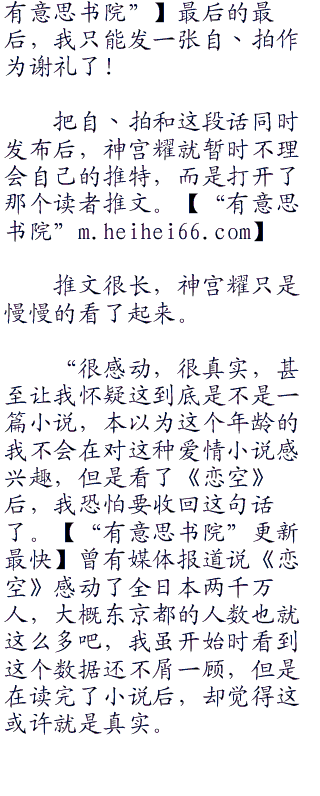 有意思书院”】最后的最
后，我只能发一张自、拍作
为谢礼了！
把自、拍和这段话同时
发布后，神宫耀就暂时不理
会自己的推特，而是打开了
那个读者推文。【“有意思
书院”m.heihei66.com】
推文很长，神宫耀只是
慢慢的看了起来。
“很感动，很真实，甚
至让我怀疑这到底是不是一
篇小说，本以为这个年龄的
我不会在对这种爱情小说感
兴趣，但是看了《恋空》
后，我恐怕要收回这句话
了。【“有意思书院”更新
最快】曾有媒体报道说《恋
空》感动了全日本两千万
人，大概东京都的人数也就
这么多吧，我虽开始时看到
这个数据还不屑一顾，但是
在读完了小说后，却觉得这
或许就是真实。